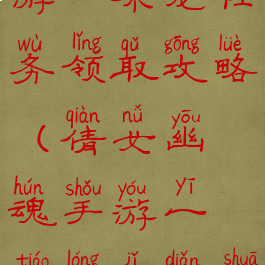 wù lǐng qǔ gōng lüè
务领取攻略
qiàn nǚ yōu
（倩女幽
hún shǒu yóu yī
魂手游一
tiáo lóng jǐ diǎn shuā